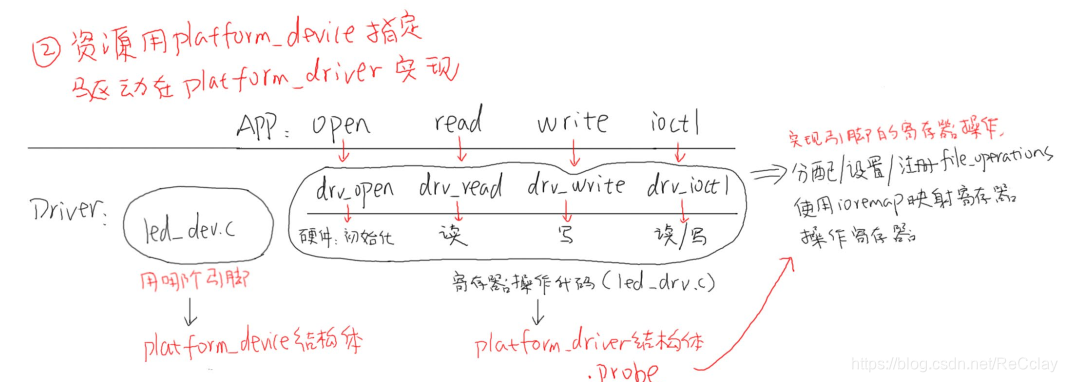 ② 资源用platform_device指定
驱动在platform_driver实现
APP: open read write ioctl
实现引脚的寄存器操作.
Driver: led_dev.c drv_open drv_read drv_write drv_ioctl ⇒ 分配/设置/注册file_operations
使用ioremap映射寄存器
硬件:初始化 读 写 读/写 操作寄存器
用哪个引脚 寄存器操作代码(led_drv.c)
platform_device结构体 platform_driver结构体
.probe
https://blog.csdn.net/ReCclay